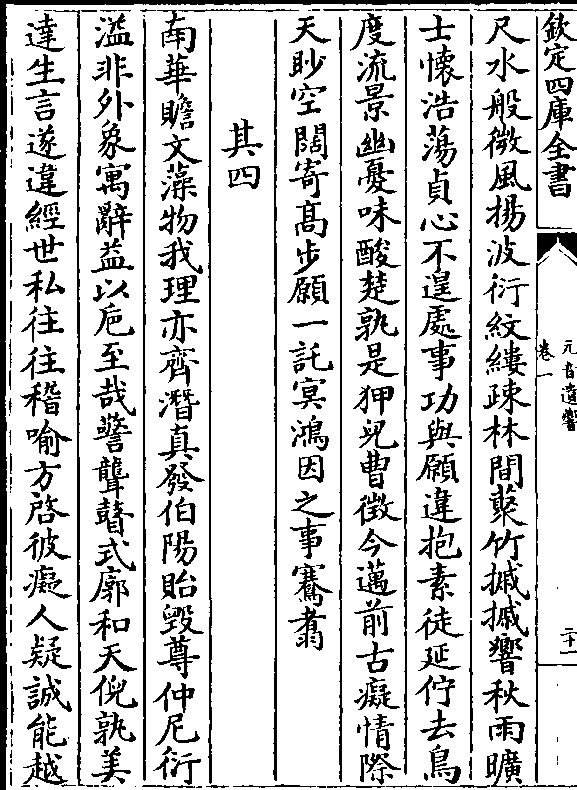 欽定四庫全書
元音遺響
卷一
二十一
尺水般微風揚波衍紋縷疎林間藂竹摵摵響秋雨曠
士懐浩蕩貞心不遑處事功與願違抱素徒延佇去鳥
度流景幽憂味酸楚孰是狎兕曹徴今邁前古癡情際
天眇空闊寄高步願一託㝠鴻因之事騫翥
其四
南華瞻文藻物我理亦齊潛真發伯陽貽毀尊仲尼衍
溢非外象寓辭益以巵至哉警聾瞽式廓和天倪孰美
達生言遂違經世私往往稽喻方啓彼癡人疑誠能越